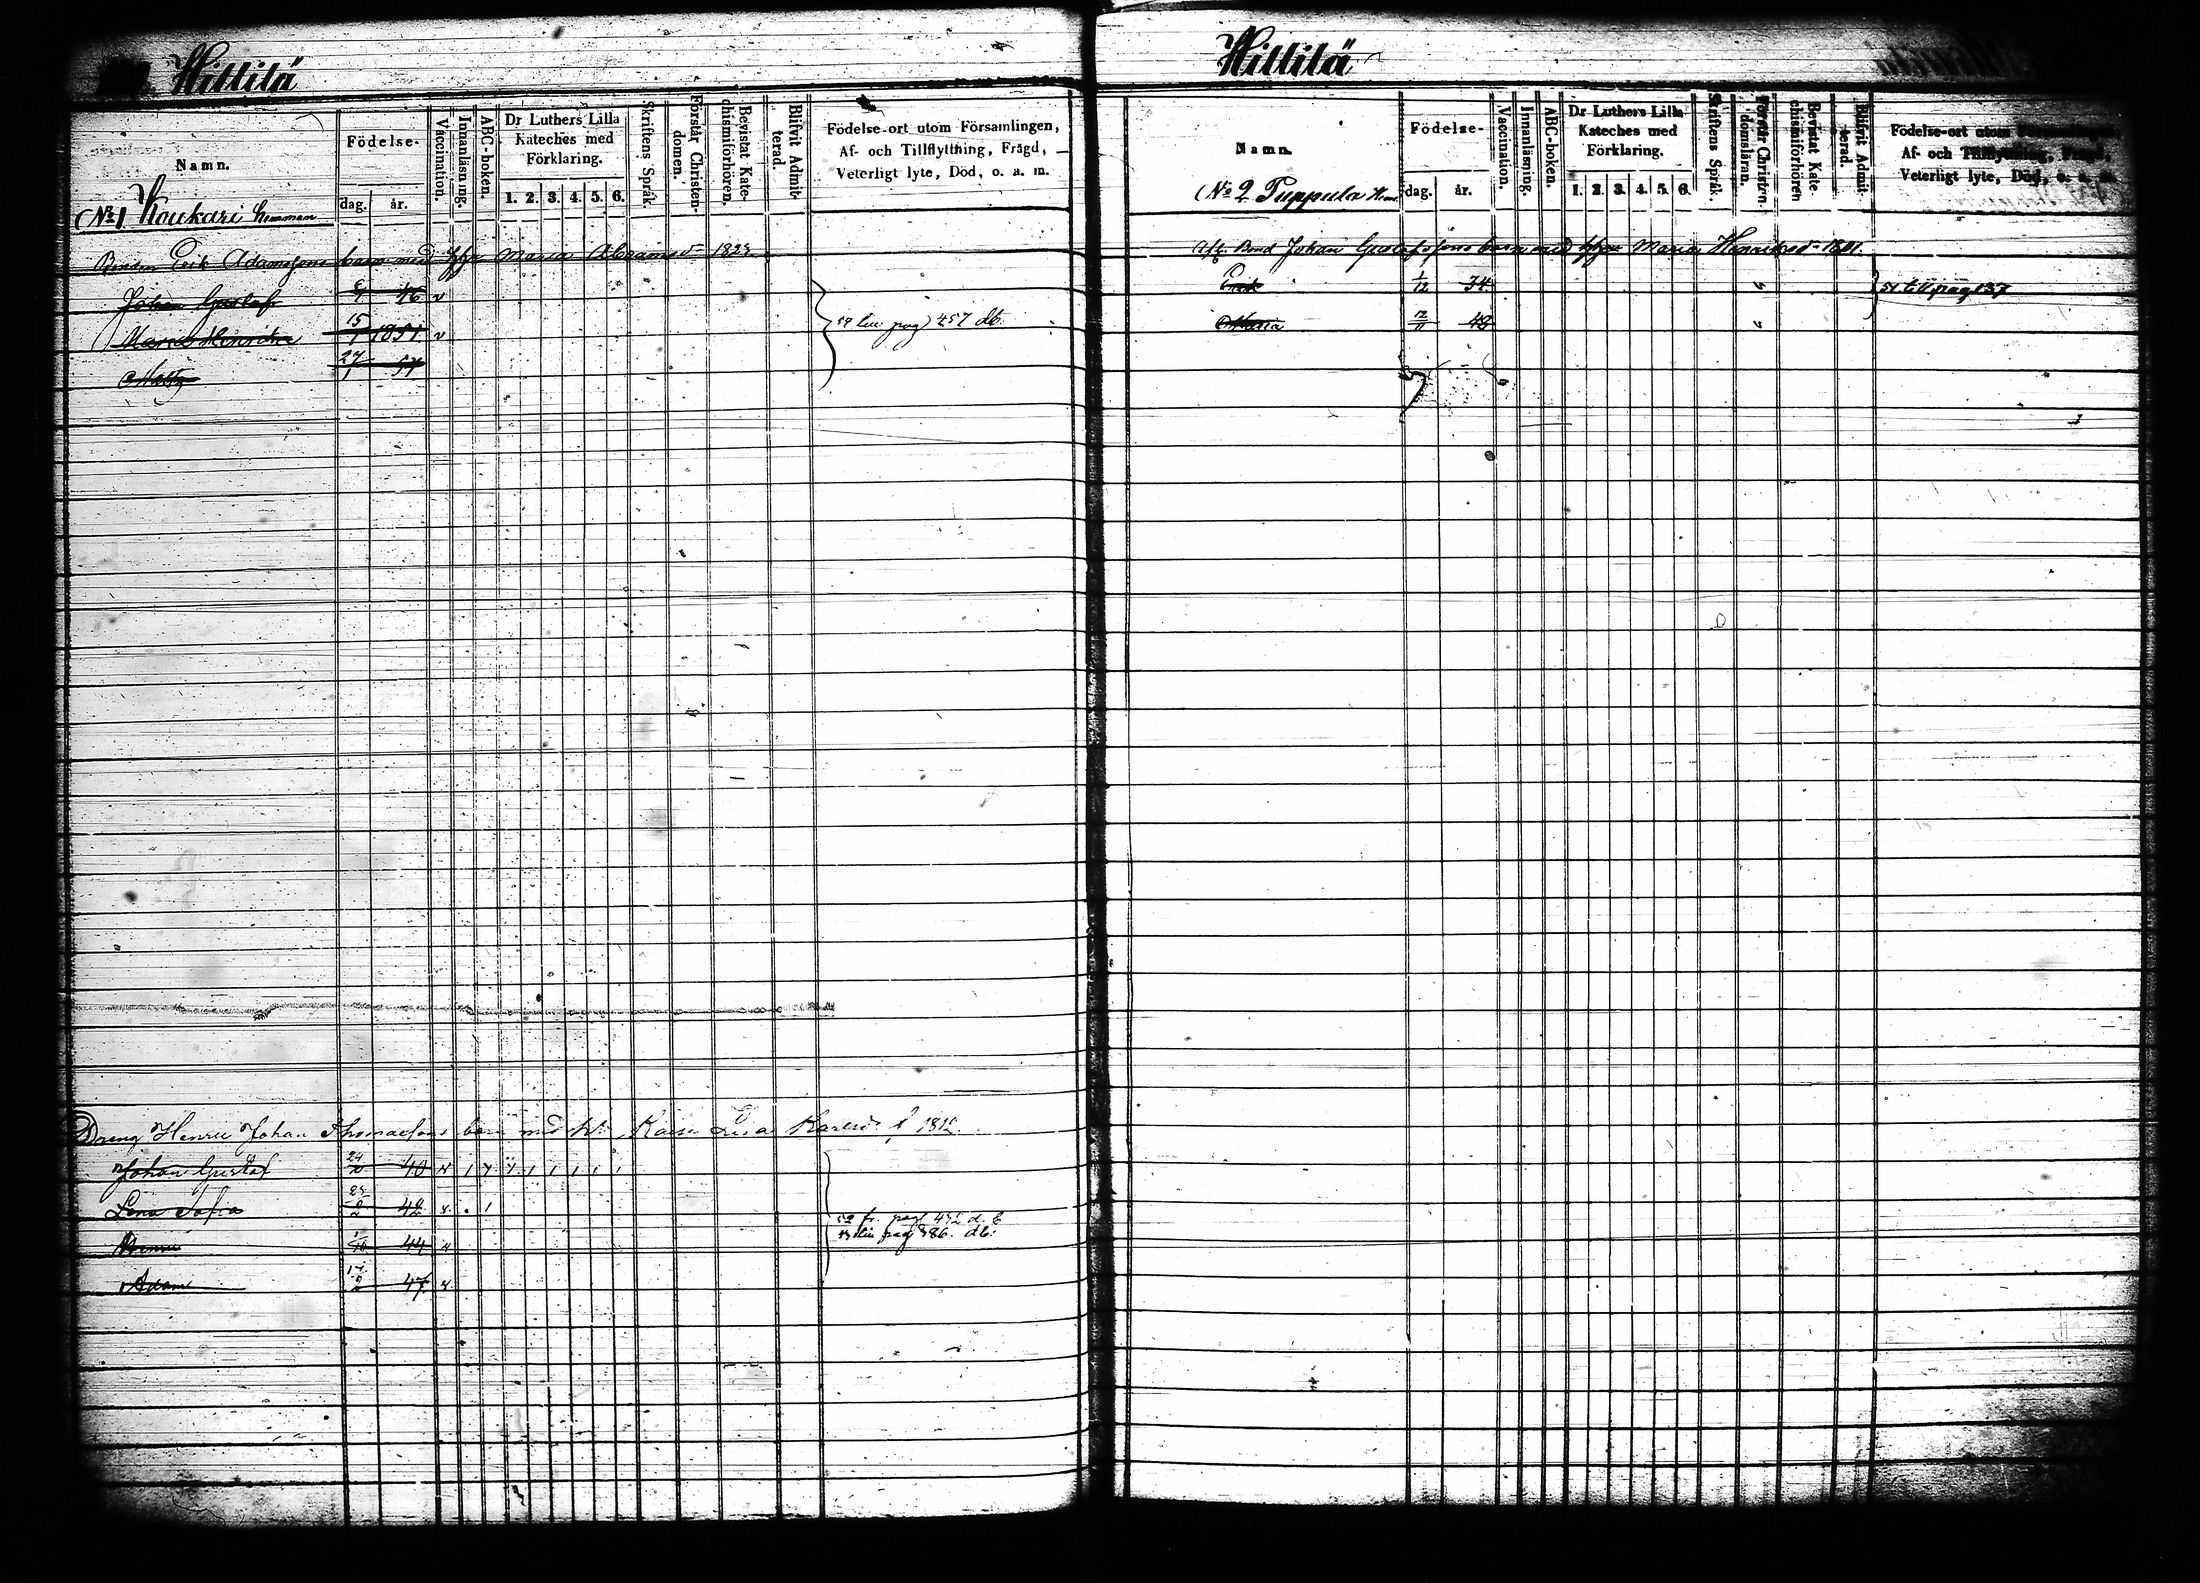 Hittilä
Namn.
Födelse-
dag. år.
Vaccination.
Innanläsning.
ABC-boken.
Dr Luthers Lilla
Kateches med
Förklaring.
1. 2. 3. 4. 5. 6.
Skriftens Språk.
Förstår Christen-
domen.
Bevistat Kate-
chismiförhören.
Blifvit Admit-
terad.
Födelse-ort utom Församlingen,
Af- och Tillflyttning, Frägd,
Veterligt lyte, Död, o. a. m.
No 1 Koukari hemman
Bonden Erik Adamssons barn med Maria Abramsd
Johan Gustaf 46 v
Maria Henrika 15/1 1851 v
Matts 27/1 54
pag 457 db.
Dreng Henric Johan Thomassons barn med Kaisa Lisa Karlsd f 1812.
Johan Gustaf 40
Lena Sofia 42
Henric 44
Adam 47
52 fr. pag 472 d. b
pag 386. db.
Hittilä
Namn.
Födelse-
dag. år.
Vaccination.
Innanläsning.
ABC-boken.
Dr Luthers Lilla
Kateches med
Förklaring.
1. 2. 3. 4. 5. 6.
Skriftens Språk.
Förstår Christen-
domsläran.
Bevistat Kate-
chismiförhören
Blifvit Admit-
terad.
Födelse-ort utom Församlingen,
Af- och Tillflyttning, Frägd,
Veterligt lyte, Död, o. a. m.
No 2 Puppula Hem
Afl. Bond Johan Gustafssons barn med Maria Henriksd 1801.
Erik 1/12 34
Maria 12/11 43
54 till pag 137